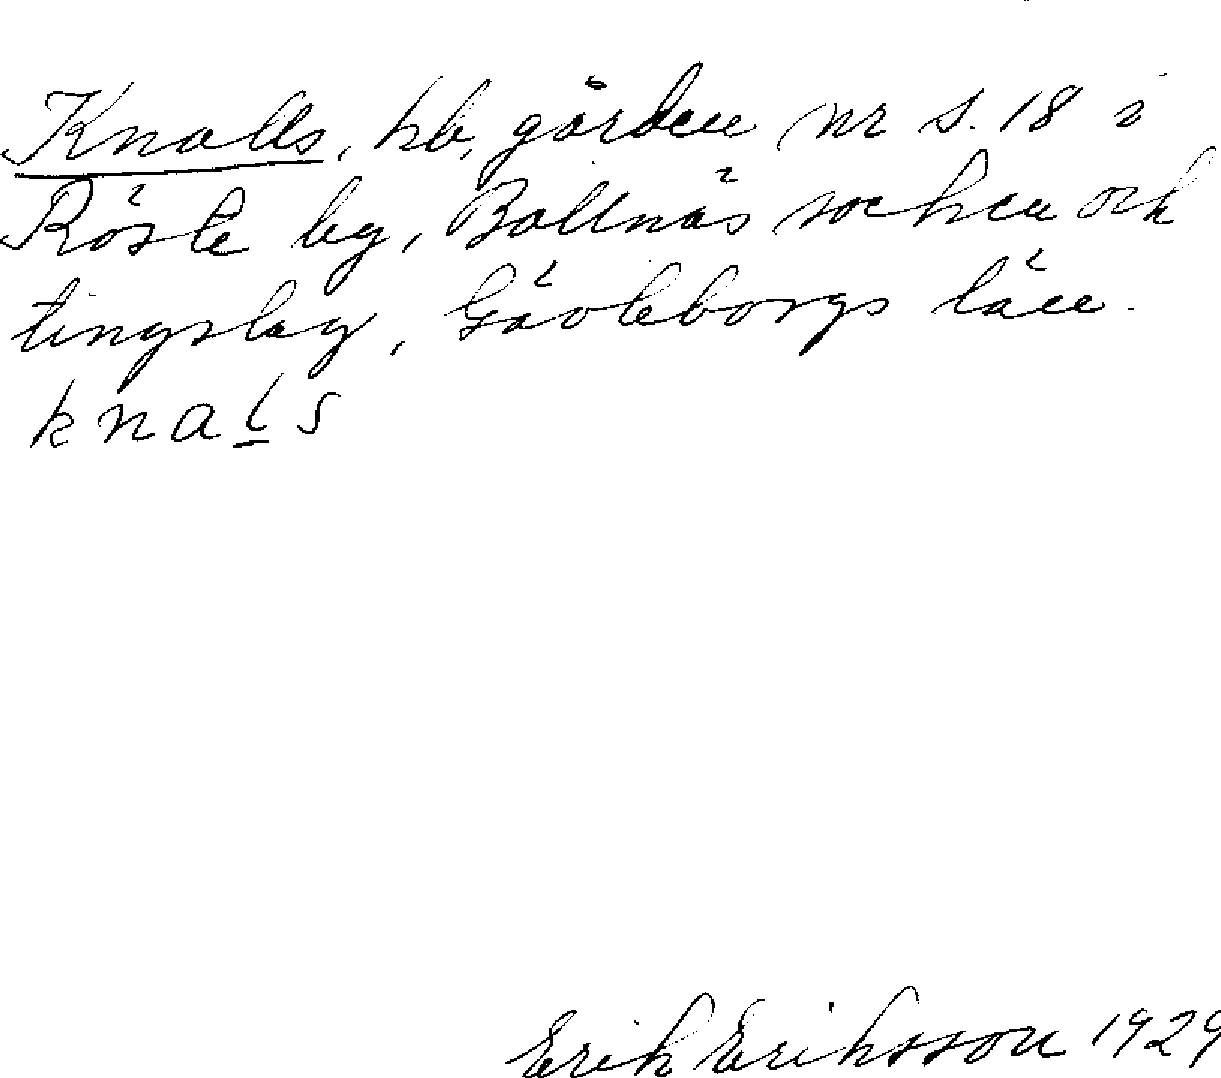 Knalls, hb, gården nr s. 18 i
Röste by, Bollnäs socken och
tingslag, Gävleborgs län.
knals
Erik Eriksson 1929